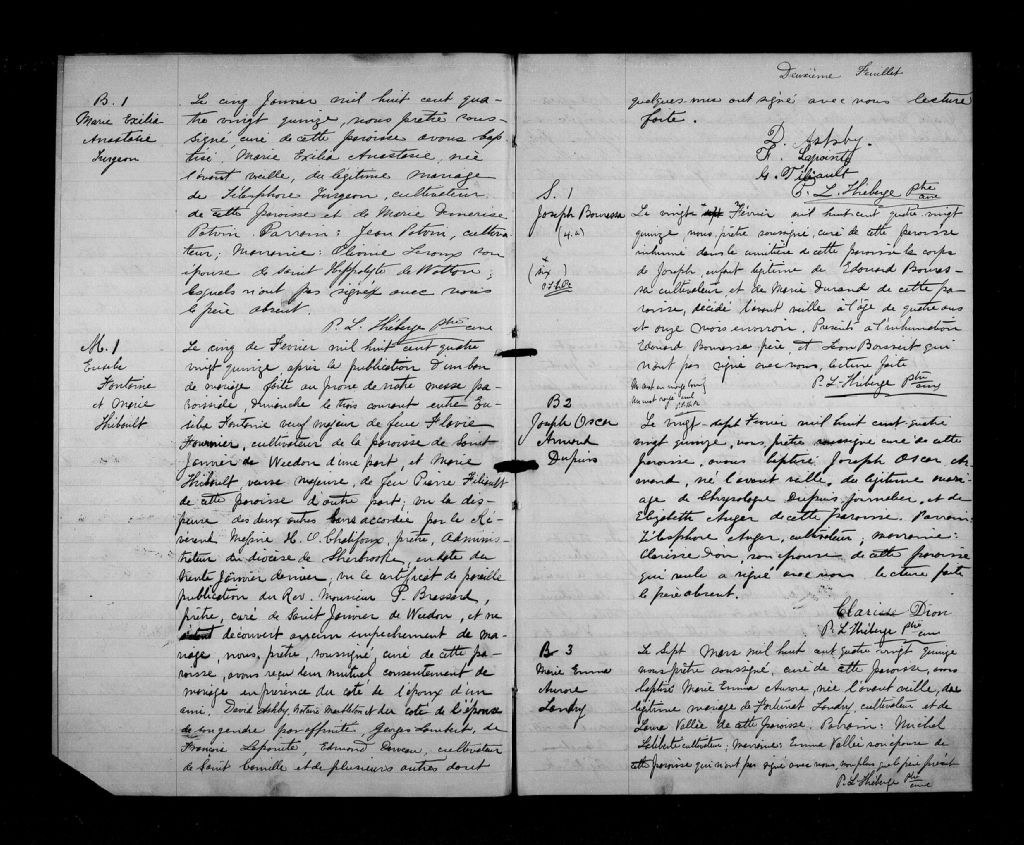 B. 1
Marie Exilia
Anastasie
Turgeon
Le cinq Janvier mil huit cent qua-
tre vingt quinze, nous prêtre sous-
signé, curé de cette paroisse avons bap-
tisé, Marie Exilia Anastasie, née
l'avant veille, du légitime mariage
de Télesphore Turgeon, cultivateur
de cette paroisse et de Marie
Potvin. Parrain: Jean Potvin, cultiva-
teur; Marraine: Leroux son
épouse de Saint Hippolyte de Wotton;
lesquels n'ont pas signé avec nous
le père absent.
P. L. Théberge Ptre curé
M. 1
Eusèbe
Fontaine
et Marie
Thibault
Le cinq de Février mil huit cent quatre
vingt quinze, après la publication d'un ban
de mariage faite au prône de notre messe pa-
roissiale, Dimanche le trois courant entre Eu-
sèbe Fontaine veuf majeur de feue Flavie
Fournier, cultivateur de la paroisse de Saint
Janvier de Weedon d'une part, et Marie
Thibault veuve majeure, de feu Pierre
de cette paroisse d'autre part; vu la dis-
pense des deux autres bans accordée par le Ré-
vérend Messire H. O. Chalifoux, prêtre, Adminis-
trateur du diocèse de Sherbrooke, en date du
trente Janvier dernier; vu le certificat de pareille
publication du Rev. Monsieur P. Brassard,
prêtre, curé de Saint Janvier de Weedon, et ne
découvert aucun empêchement de ma-
riage, nous, prêtre, soussigné curé de cette pa-
roisse, avons reçu leur mutuel consentement de
mariage en présence du coté de l'époux d'un
ami. David Ashby, notaire et du coté de l'épouse
de par affinité Georges Lambert, de
François Lapointe, Edmond, cultivateur
de Saint Camille et de plusieurs autres dont
Deuxième Feuillet
quelques uns ont signé avec nous lecture
faite.
D. Ashby.
F. Lapointe
G.
P. L. Théberge Ptre
curé
S. 1
Joseph Bourassa
(4. a)
Le vingt Février mil huit cent quatre vingt
quinze, nous, prêtre soussigné, curé de cette paroisse
inhumé dans le cimetière de cette paroisse le corps
de Joseph, enfant légitime de Edouard Bouras-
sa cultivateur et de Marie Durand de cette pa-
roisse, décédé l'avant veille à l'âge de quatre ans
et onze mois environ. Présents à l'inhumation
Edouard Bourassa père, et Léon Boissert qui
n'ont pas signé avec nous, lecture faite
P. L. Théberge Ptre
curé
B 2
Joseph Oscar
Armand
Dupuis
Le vingt-sept Février mil huit cent quatre
vingt quinze, nous, prêtre soussigné curé de cette
paroisse, avons baptisé Joseph Oscar Ar-
mand, né l'avant veille, du légitime mari-
age de Chrysologue Dupuis journalier, et de
Elizabeth Auger de cette paroisse. Parrain:
Télesphore Auger, cultivateur, marraine:
Clarisse Dion, son épouse de cette paroisse
qui seule a signé avec nous lecture faite
le père absent.
Clarisse Dion
P. L Théberge Ptre
curé
B 3
Marie Emma
Aurore
Landry
Le Sept Mars mil huit cent quatre vingt quinze
nous prêtre soussigné, curé de cette paroisse, avons
baptisé Marie Emma Aurore, née l'avant veille, du
légitime mariage de Fortunat Landry, cultivateur et de
Vallée de cette paroisse. Parrain: Michel
cultivateur; Marraine: Emma Vallée son épouse de
cette paroisse qui n'ont pas signé avec nous, non plus que le père présent
P. L Théberge Ptre
curé